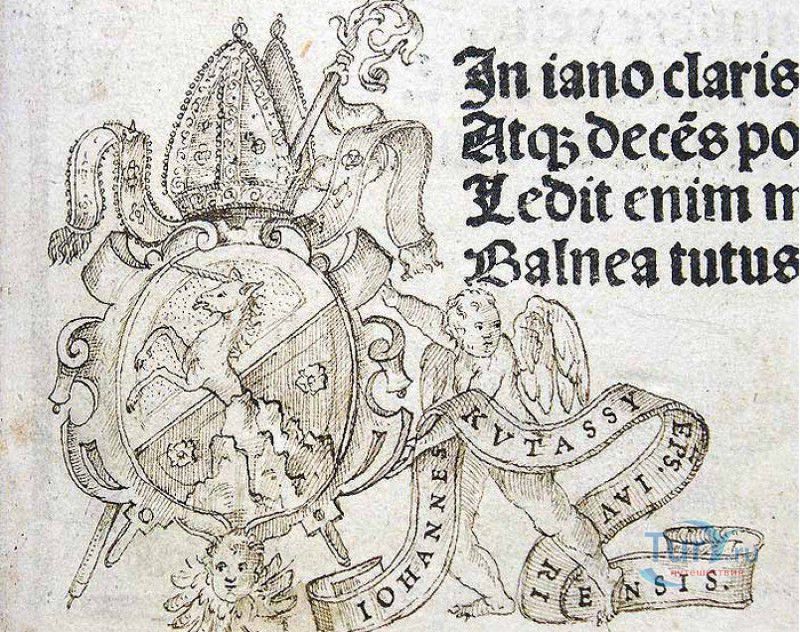 In iano claris
Atqꝫ decēs po
Ledit enim m
Balnea tutus
IOHANNES KVTASSY EPS. IAVRIENSIS.
Tury.ru
путешествия